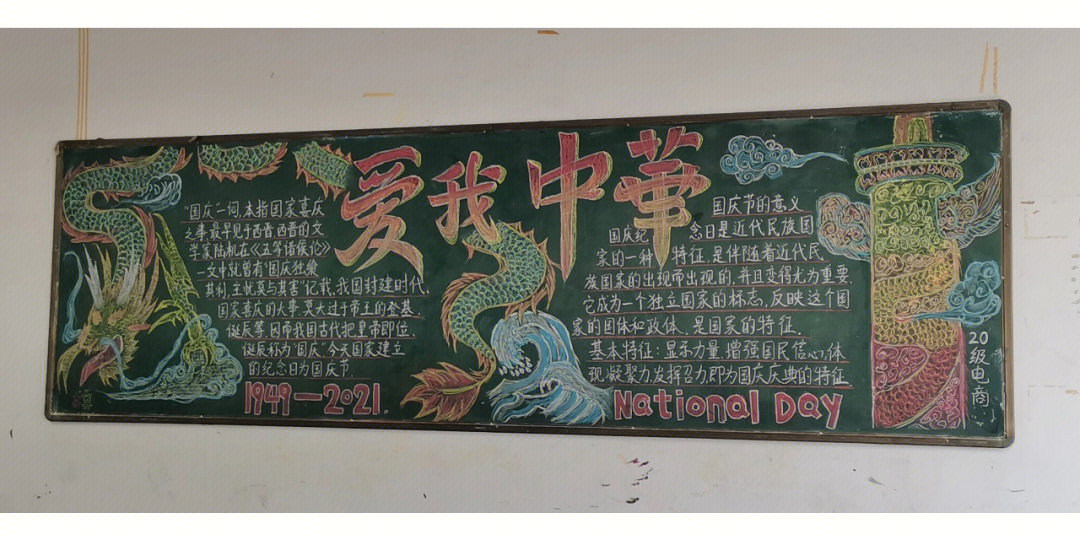 爱我中華
"国庆"一词,本指国家喜庆
之事,最早见于西晋,西晋的文
学家陆机在《五等诸侯论》
一文中就曾有"国庆独飨
其利,主忧莫与其害"记载,我国封建时代,
国家喜庆的大事,莫大过于帝王的登基、
诞辰等,因而我国古代把皇帝即位、
诞辰称为"国庆"今天国家建立
的纪念日为国庆节.
1949—2021.
国庆节的意义
国庆纪念日是近代民族国
家的一种特征,是伴随着近代民
族国家的出现而出现的,并且变得尤为重要.
它成为一个独立国家的标志,反映这个国
家的国体和政体、是国家的特征.
基本特征:显示力量,增强国民信心,体
现凝聚力,发挥召力,即为国庆庆典的特征
National Day
20级电商